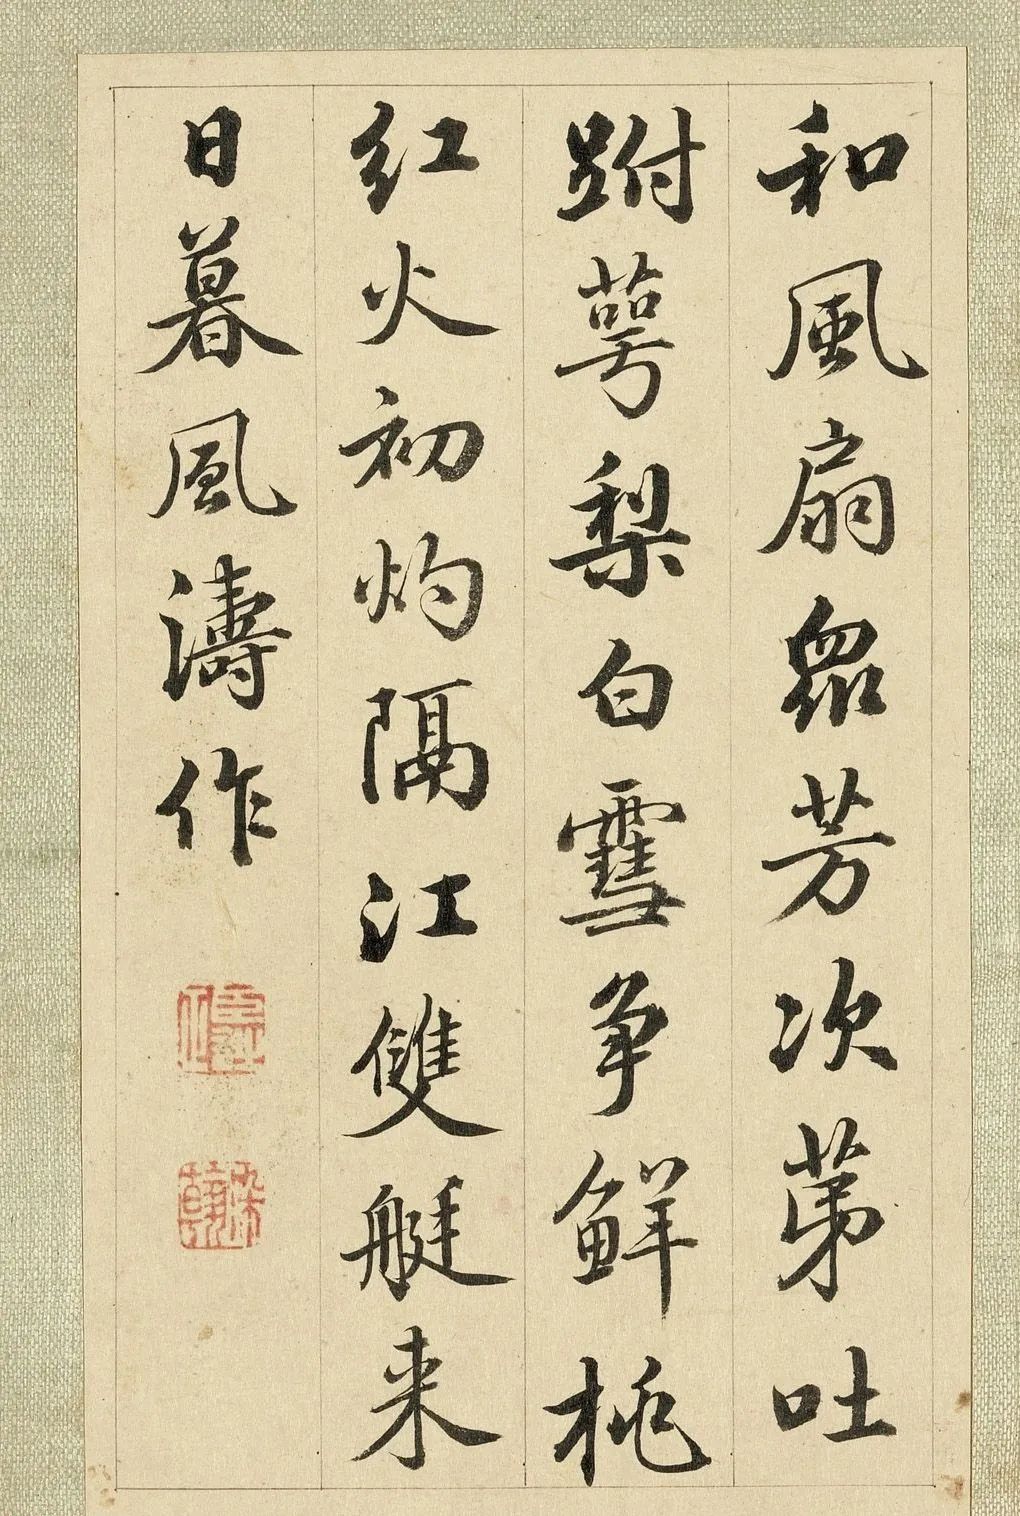 和風扇眾芳次苐吐
跗萼梨白雪爭鮮桃
紅火初灼隔江雙艇来
日暮風濤作